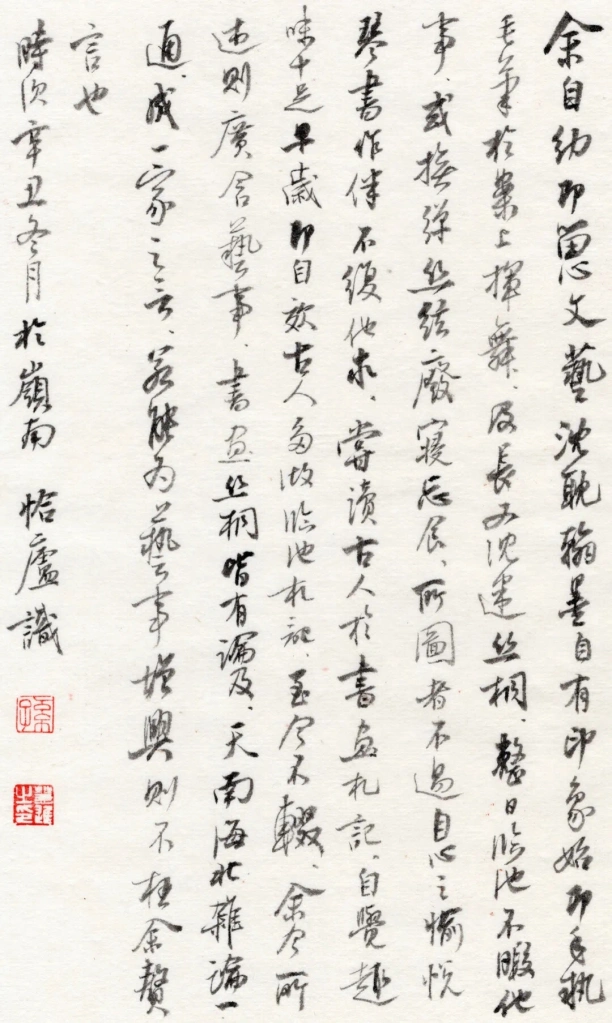 余自幼即喜文藝沈耽翰墨自有印象始即手執
毛筆於案上揮舞、及長又沈迷丝桐、整日臨池不暇他
事、或撫弹丝絃廢寢忘食、所圖者不過自心之愉悦
琴書作伴不復他求、嘗讀古人於書画札記、自覺趣
味十足早歲即自效古人多做臨池札記、至今不輟、余今所
述則廣含藝事、書画丝桐皆有論及、天南海北雜論一
通、成一家之言、若能为藝事增興則不枉余贅
言也
時次辛丑冬月於嶺南 恰廬識